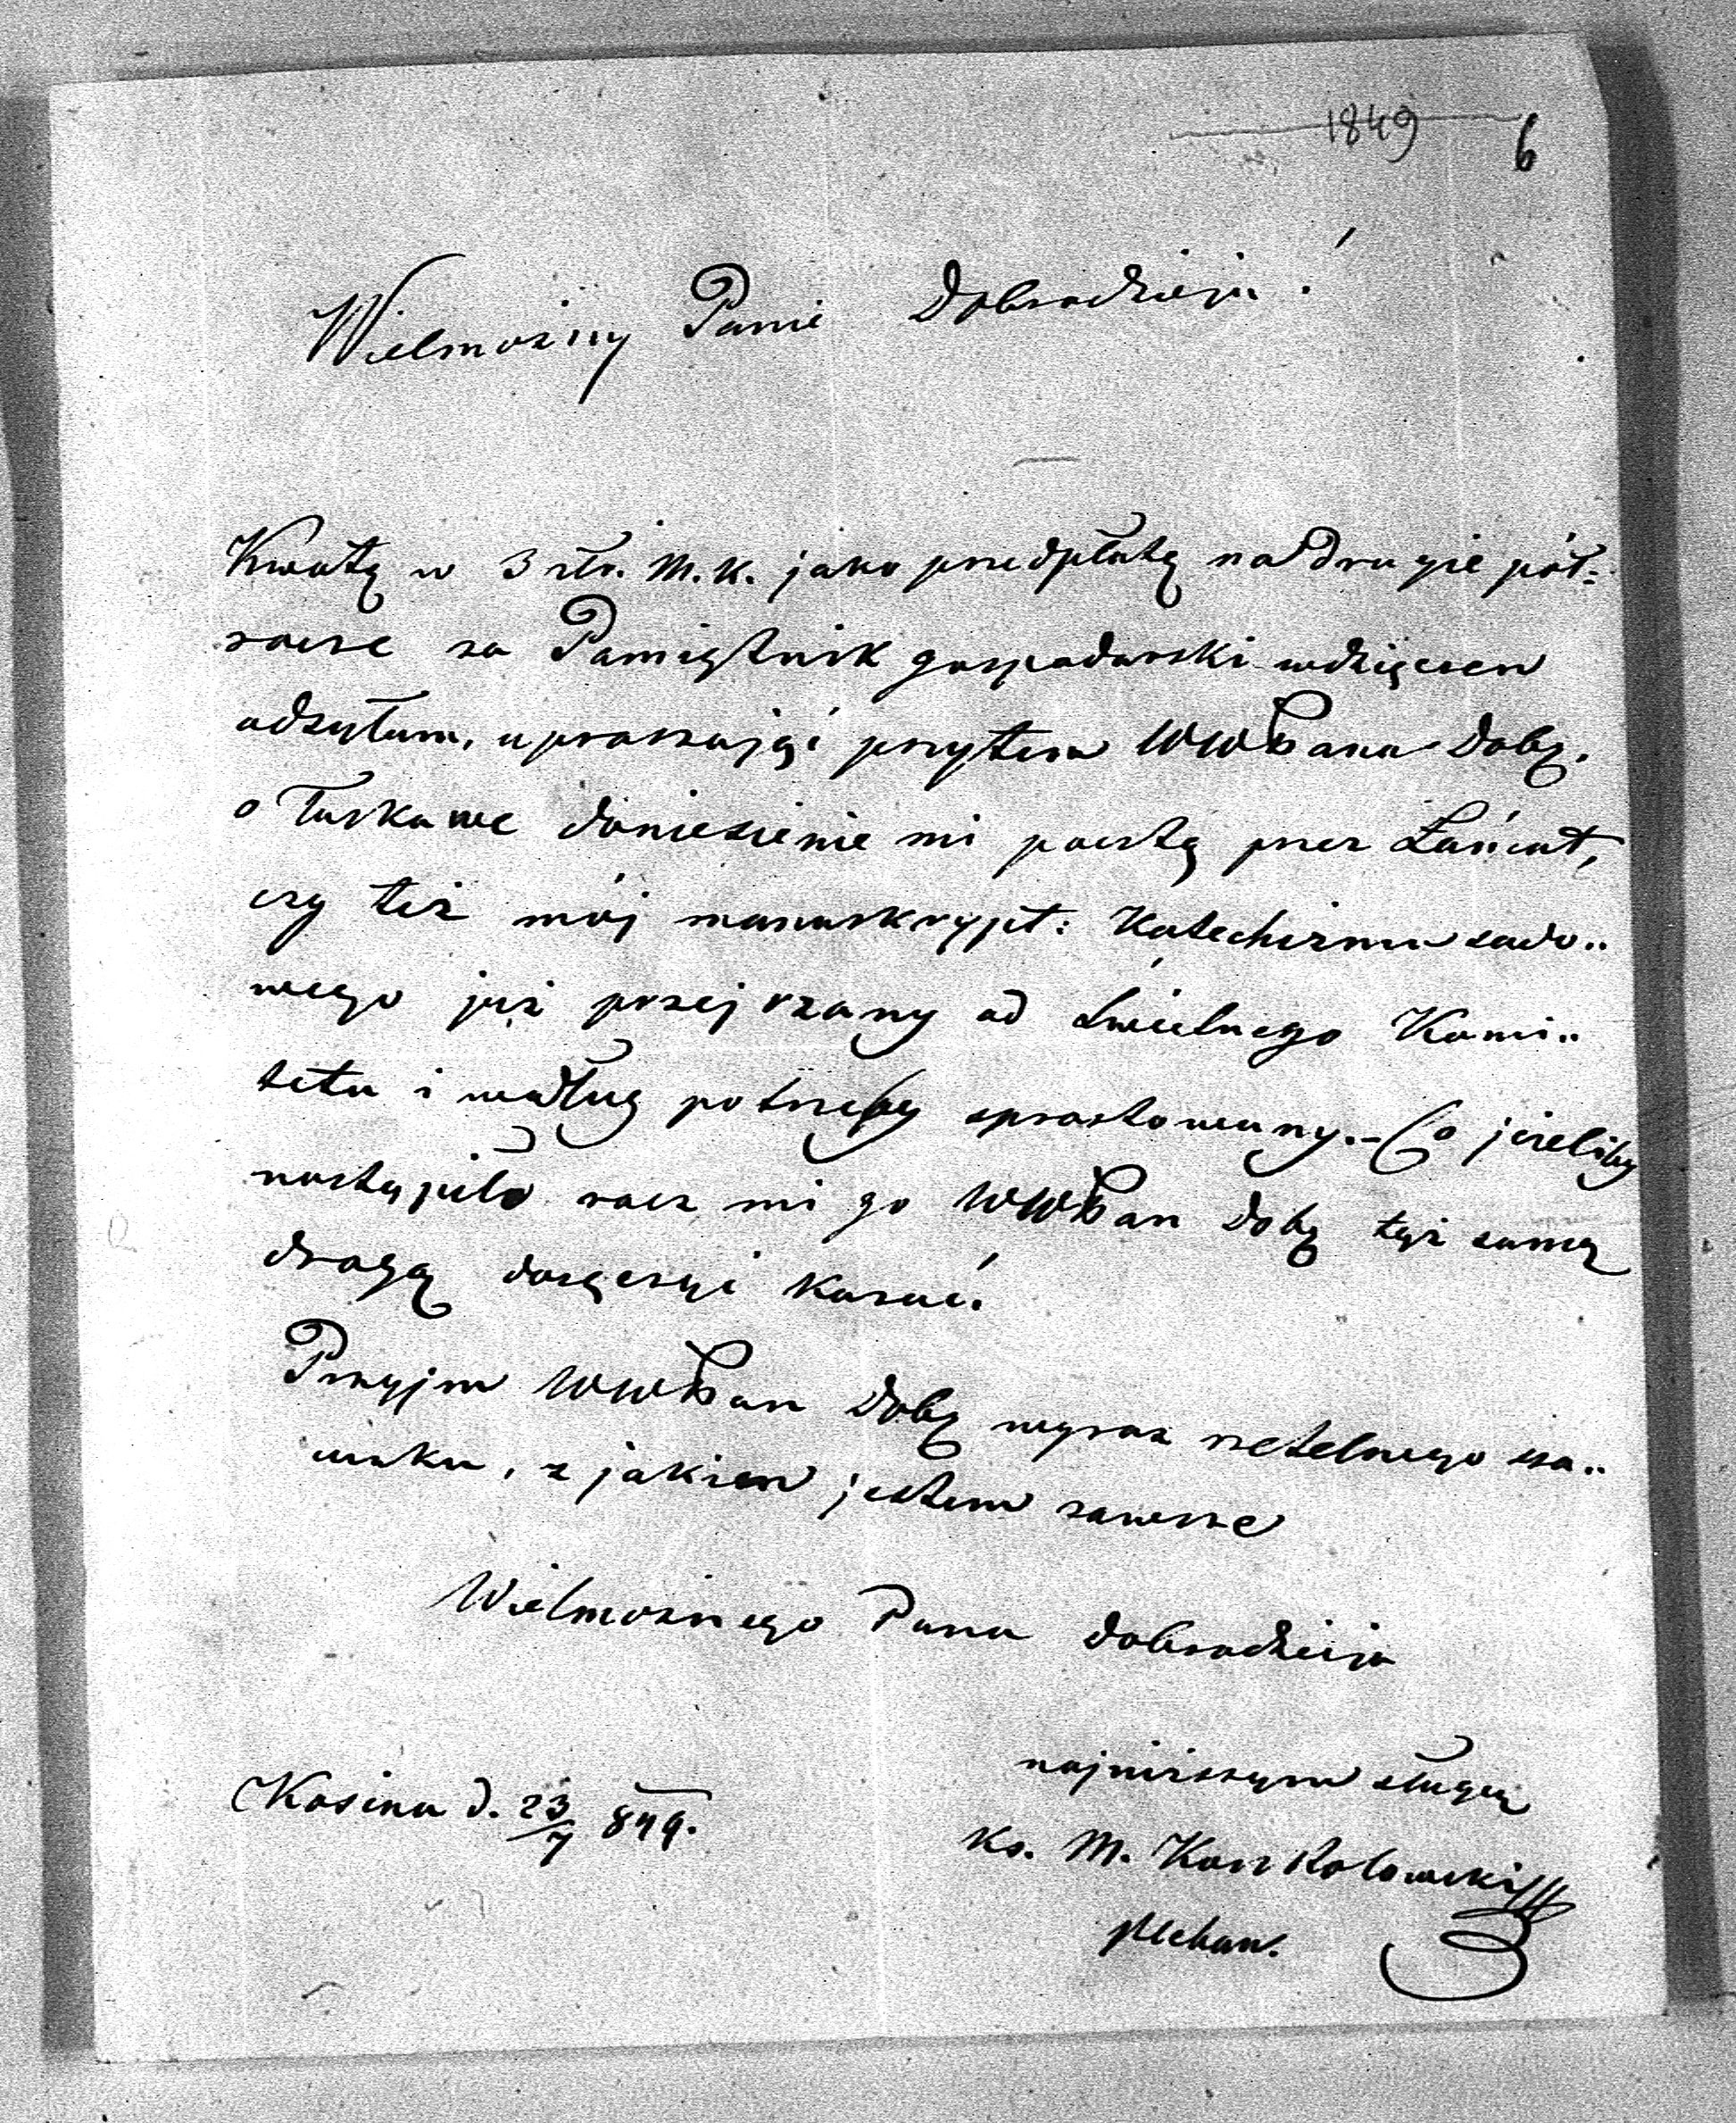 1849 6
Wielmożny Panie Dobrodzieju!
Kwotę w 3 złr. M.K. jako przedpłatę na drugie pół=
rocze za Pamiętnik gospodarski wdzięczen
odsyłam, upraszając przytem WWPana Dobr.
o łaskawe doniesienie mi pocztą przez Łańcut,
czy też mój manuskrypt: Katechizmu sado„
wego już przejrzany od Świetnego Komi„
tetu i według potrzeby sprostowany. – Co jeżeliby
nastąpiło racz mi go WWPan Dobr tąż samą
drogą doręczyć kazać.
Przyjm WWPan Dobr wyraz rzetelnego sza„
cunku, z jakiem jestem zawsze
Wielmożnego Pana Dobrodzieja
najniższym sługą
Kosina d. 23/7 849.
ks. M. Korzkolowski
pleban.